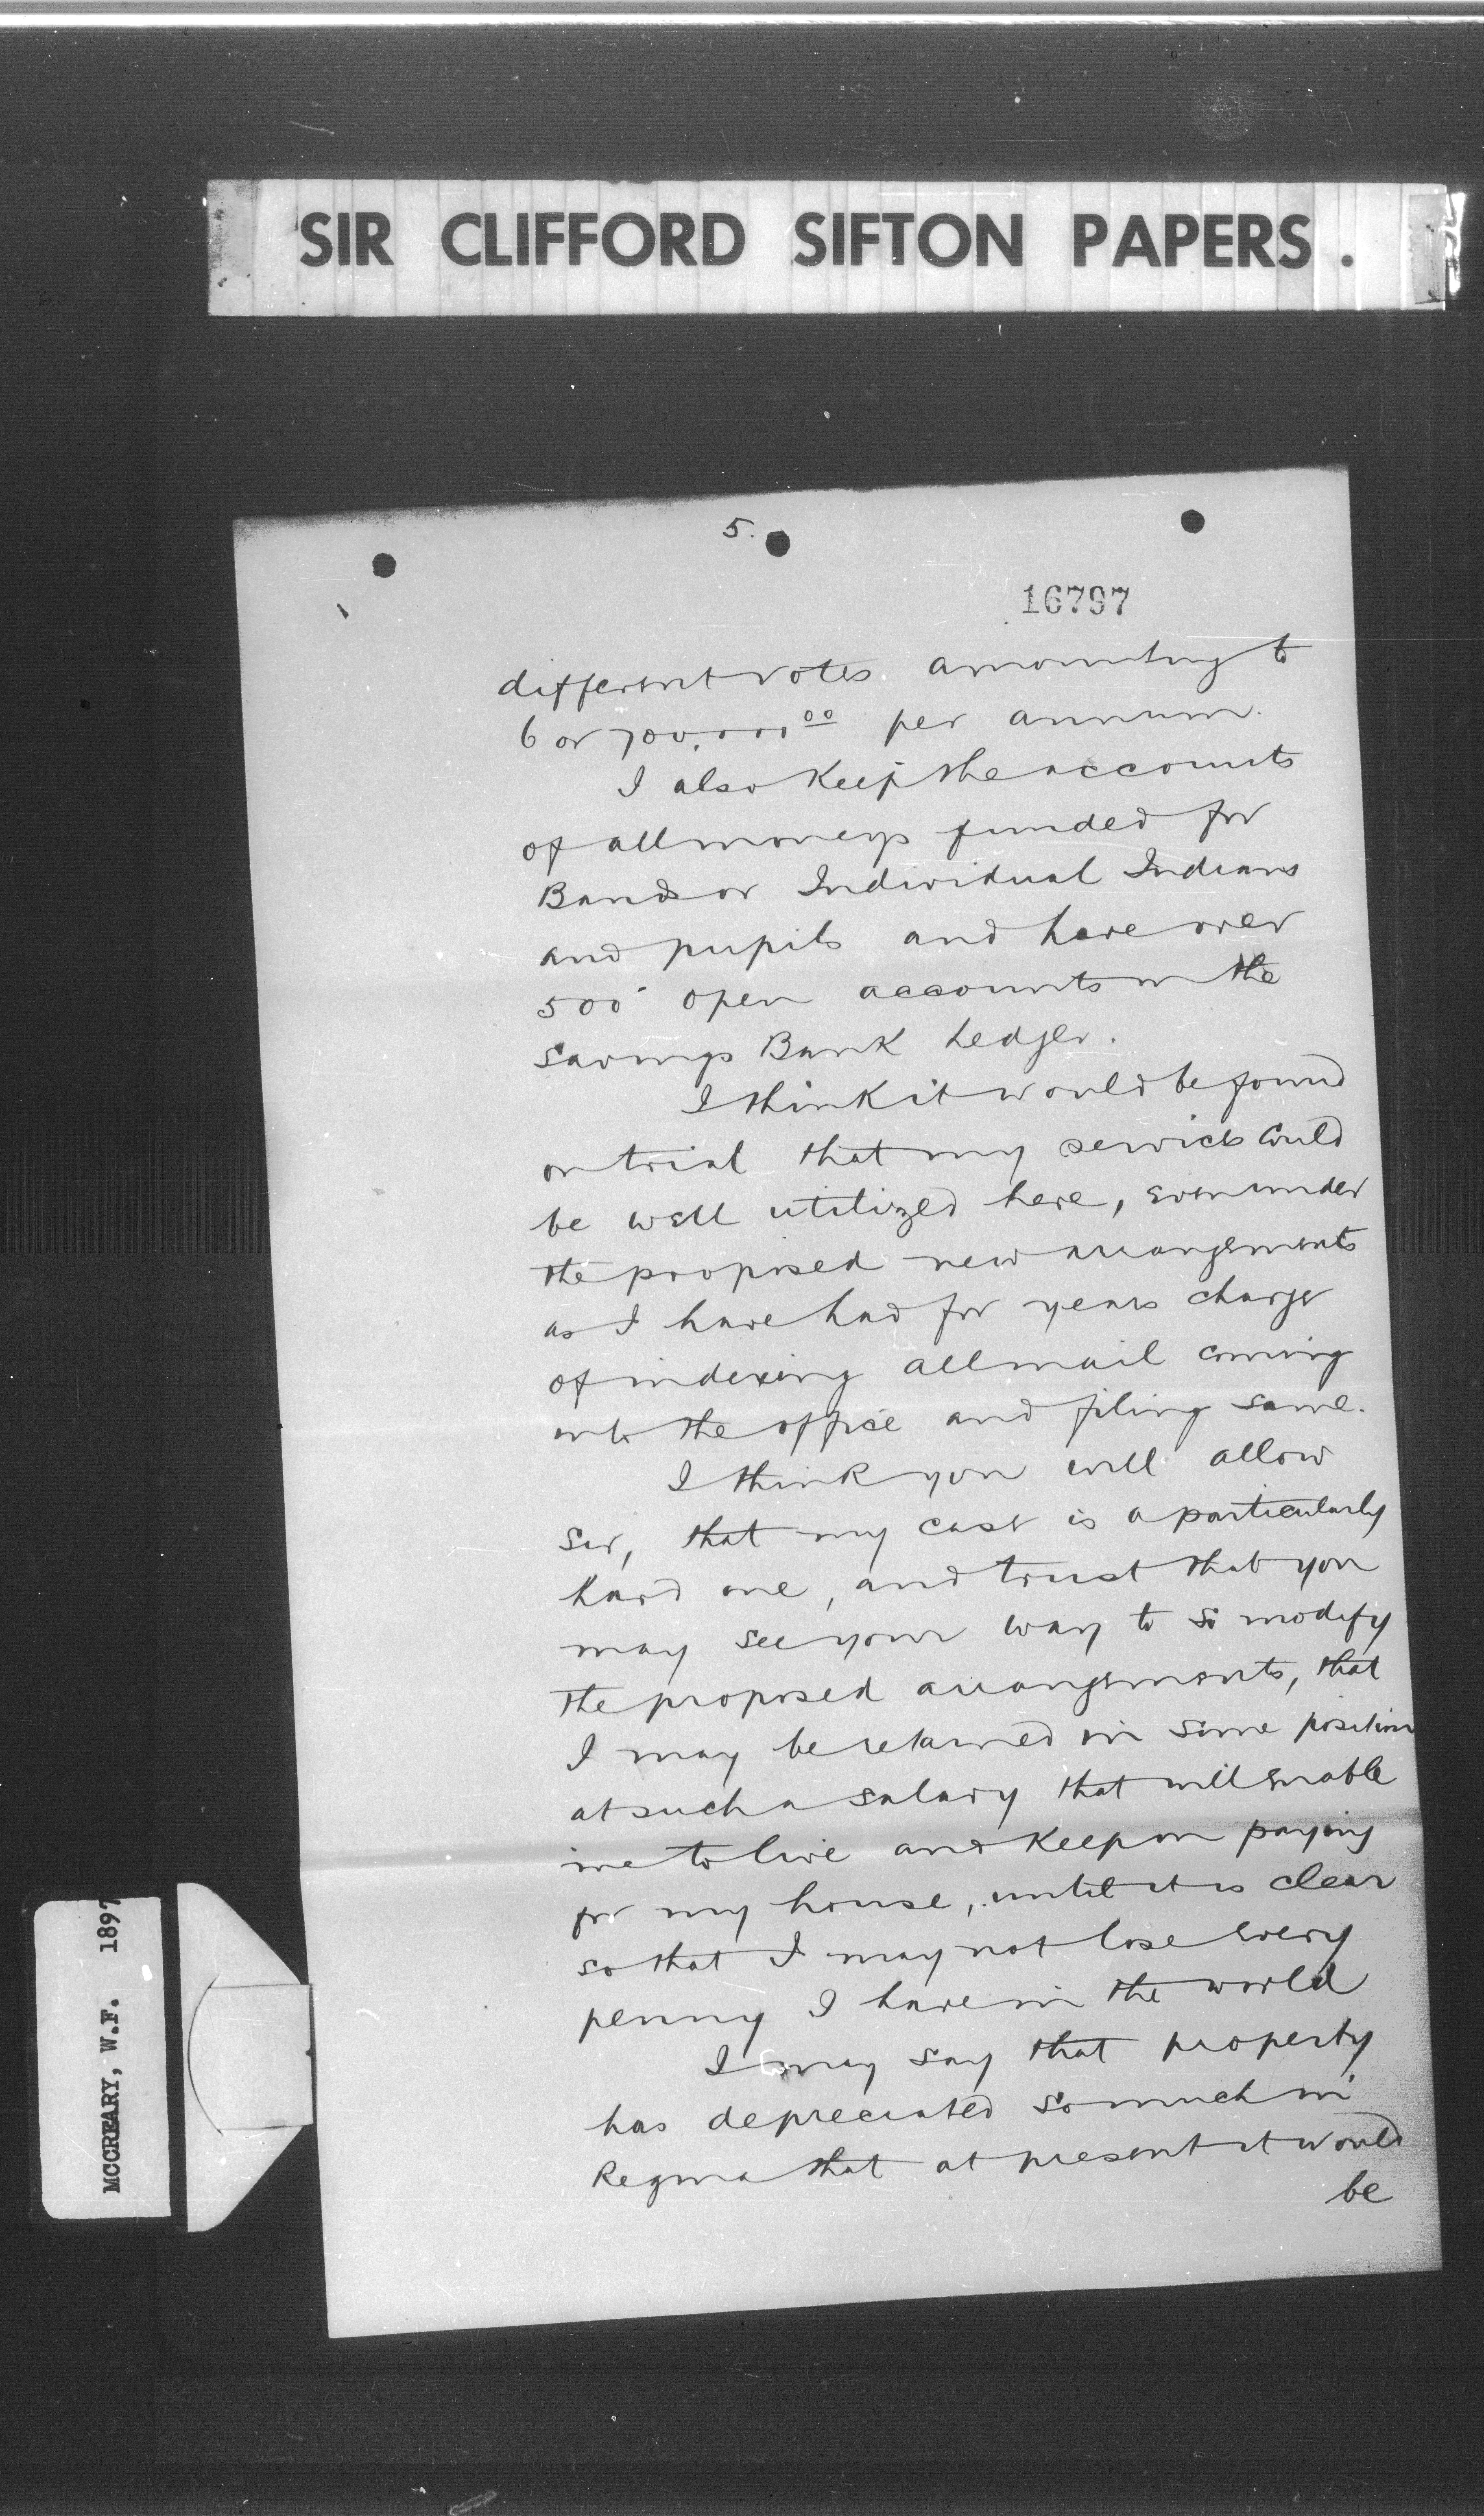 SIR CLIFFORD SIFTON PAPERS.
5.
16797
different votes amounting to
6 or 700,000 00 per annum.
I also keep the accounts
of all moneys funded for
Bands or Individual Indians
and pupils and have over
500 open accounts in the
Savings Bank Ledger.
I think it would be found
on trial that my services could
be well utilized here, even under
the proposed new arrangements
as I have had for years charge
of indexing all mail coming
into the office and filing same.
I think you will allow
Sir, that my case is a particularly
hard one, and trust that you
may see your way to so modify
the proposed arrangements, that
I may be retained in some position
at such a salary that will enable
me to live and keep on paying
for my house, until it is clear
so that I may not lose every
penny I have in the world
I may say that property
has depreciated so much in
Regina that at present it would
be
MCCREARY, W.F. 1897